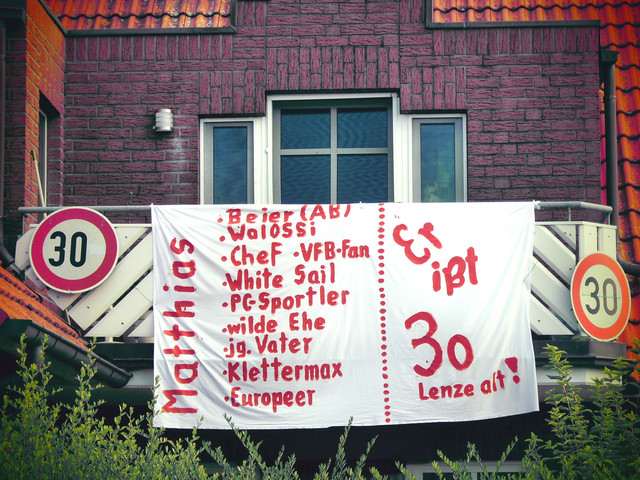 30
Matthias
·Beier (AB)
·Walossi
·Chef ·VFB-Fan
·White Sail
·PC-Sportler
·wilde Ehe
·jg. Vater
·Klettermax
·Europeer
Er
ißt
30
Lenze alt!
30